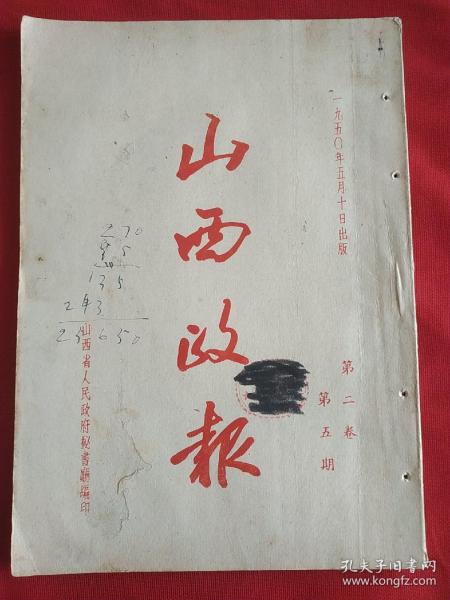 一九五〇年五月十日出版
山西政報
第二卷
第五期
山西省人民政府秘書廳編印
270
5
135
243
25650
孔夫子旧书网
www.kongfz.com